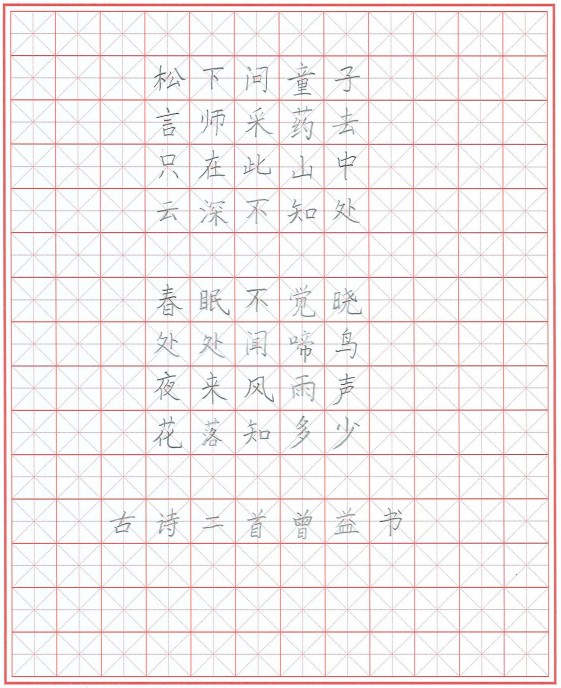 松下问童子
言师采药去
只在此山中
云深不知处
春眠不觉晓
处处闻啼鸟
夜来风雨声
花落知多少
古诗二首曾益书